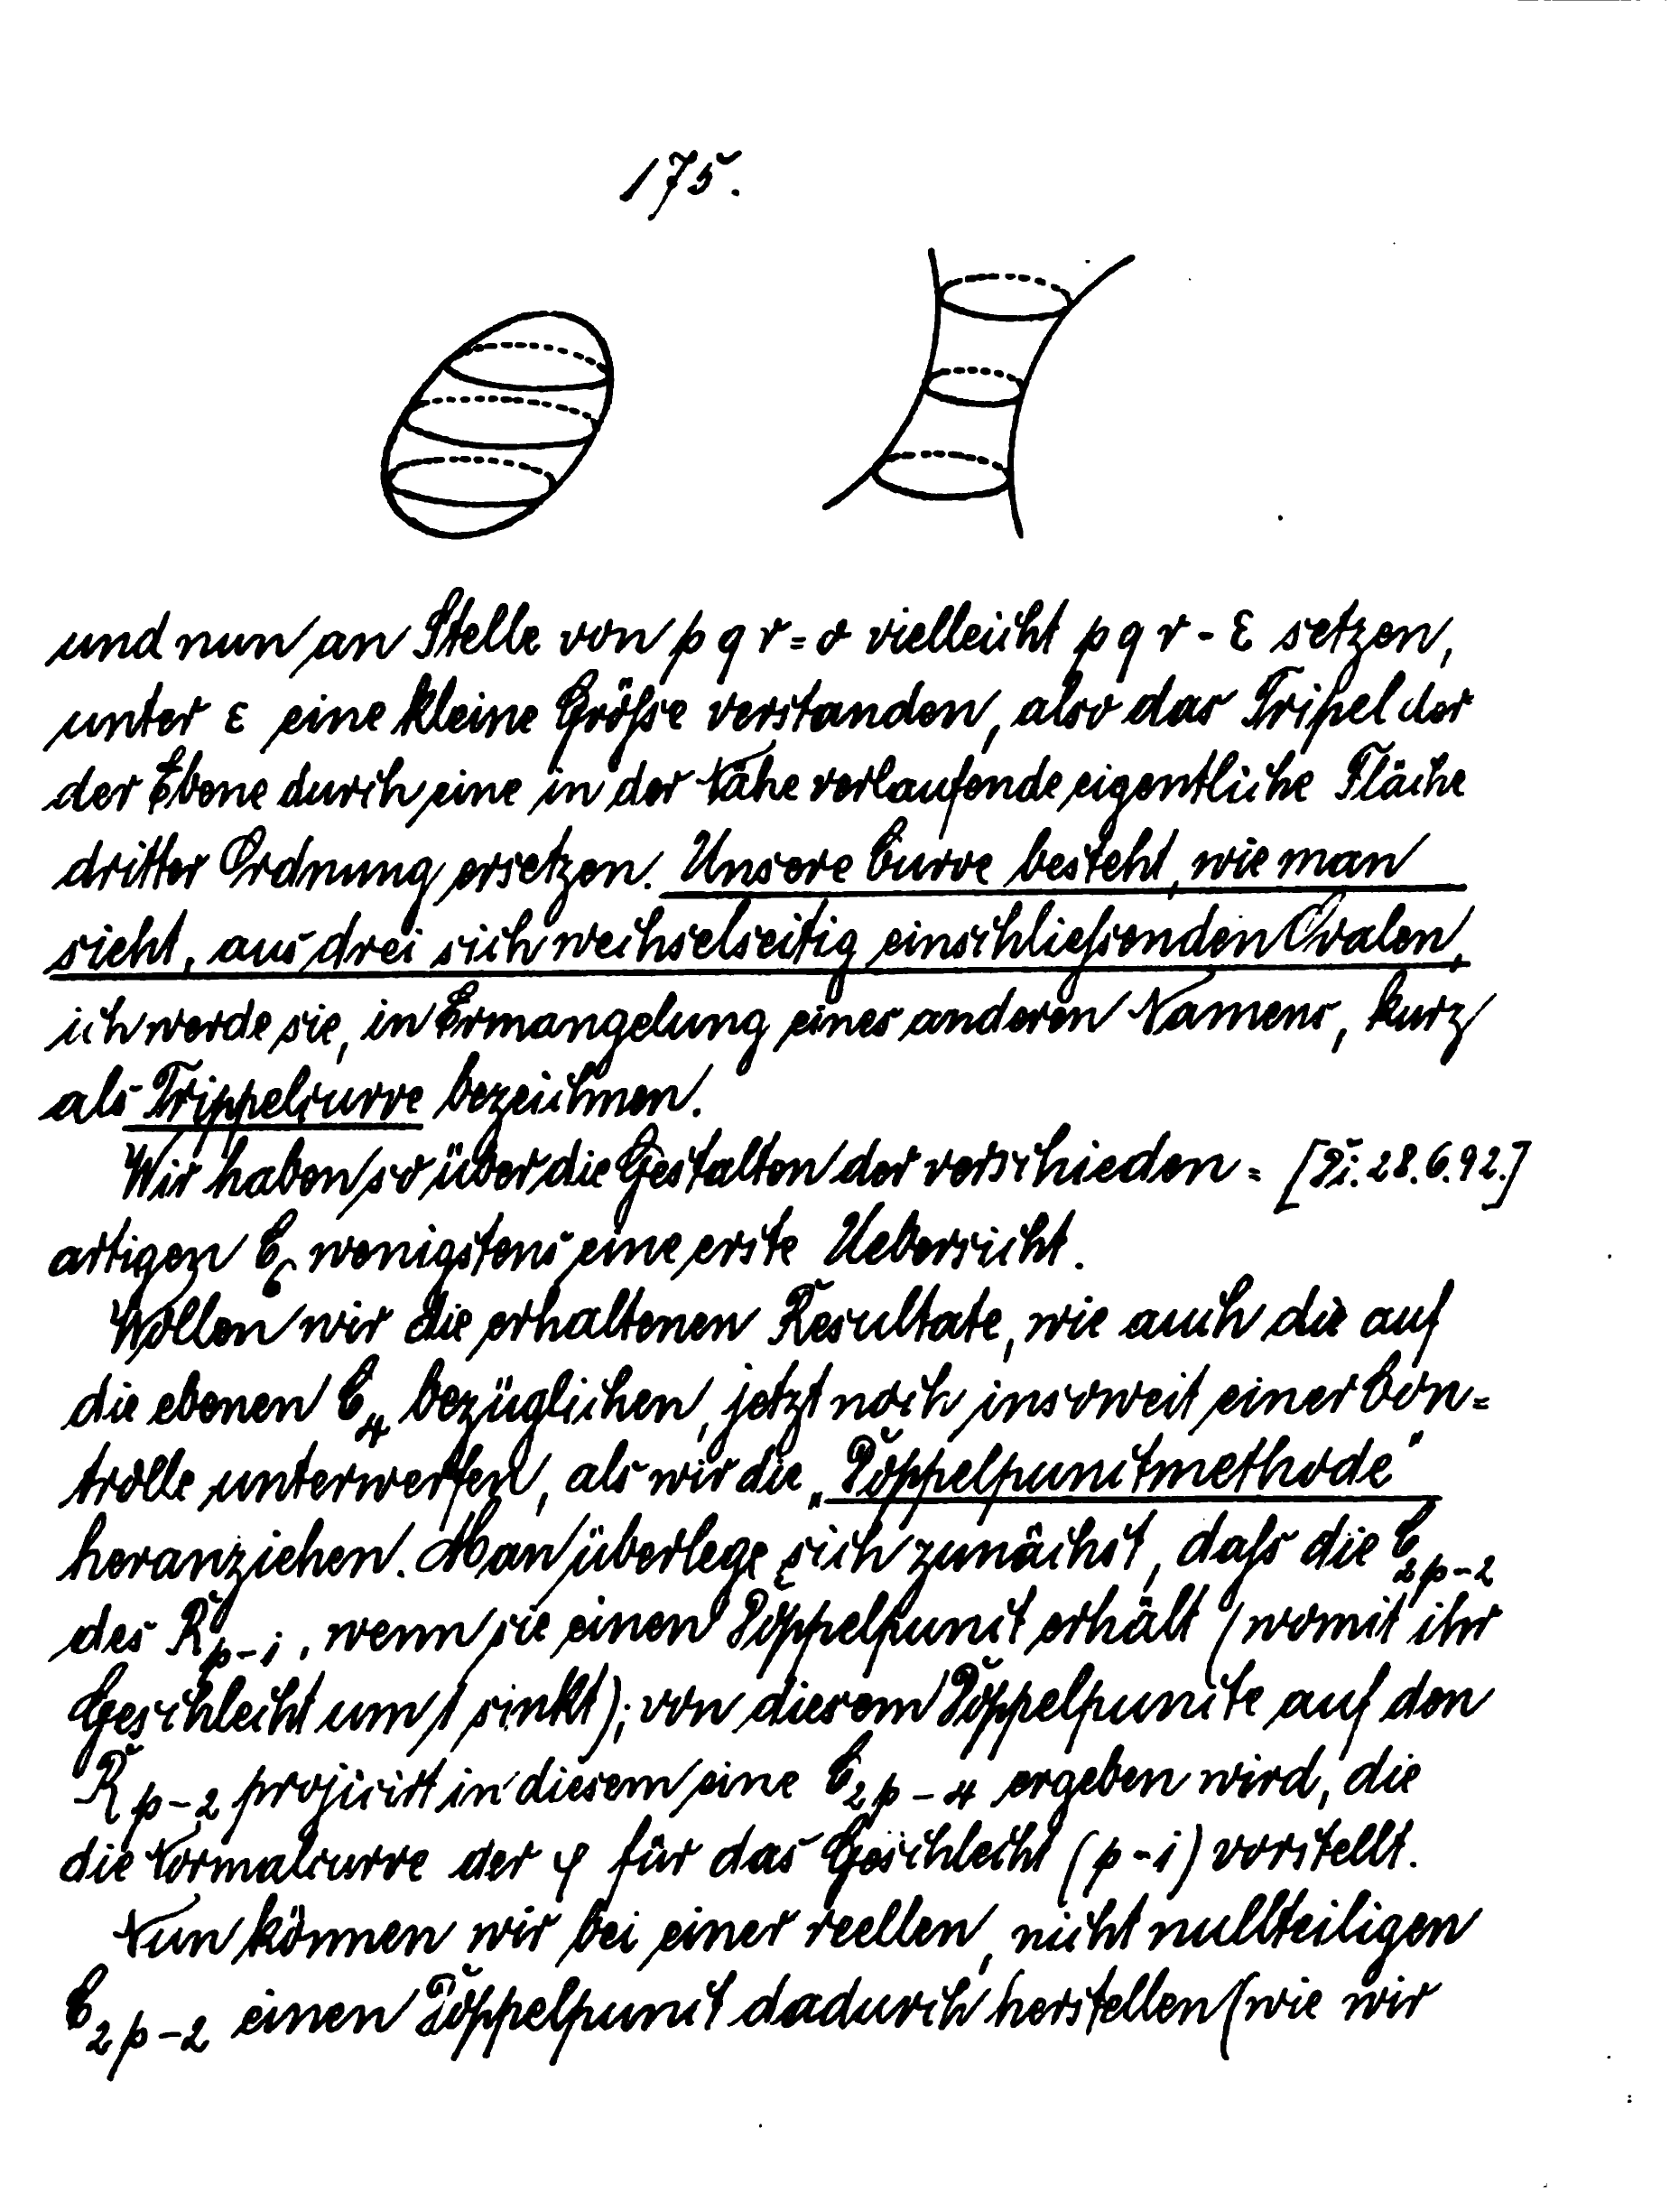 175.
und nun an Stelle von p q r = o vielleicht p q r - ε setzen,
unter ε eine kleine Größe verstanden, also das Tripel der
der Ebene durch eine in der Nähe verlaufende eigentliche Fläche
dritter Ordnung ersetzen. Unsere Curve besteht, wie man
sieht, aus drei sich wechselseitig einschließenden Ovalen,
ich werde sie, in Ermangelung eines anderen Namens, kurz
als Trippelcurve bezeichnen.
Wir haben so über die Gestalten der verschieden= [Di. 28.6.92.]
artigen C₆ wenigstens eine erste Uebersicht.
Wollen wir die erhaltenen Resultate, wie auch die auf
die ebenen C₄ bezüglichen, jetzt noch insoweit einer Con=
trolle unterwerfen, als wir die „Doppelpunctmethode"
heranziehen. Man überlege sich zunächst, daß die C₂ₚ₋₂
des Rₚ₋₁, wenn sie einen Doppelpunct erhält (womit ihr
Geschlecht um 1 sinkt); von diesem Doppelpuncte auf den
Rₚ₋₂ projicirt in diesem eine C₂ₚ₋₄ ergeben wird, die
die Normalcurve der φ für das Geschlecht (p-1) vorstellt.
Nun können wir bei einer reellen, nicht nullteiligen
C₂ₚ₋₂ einen Doppelpunct dadurch herstellen (wie wir